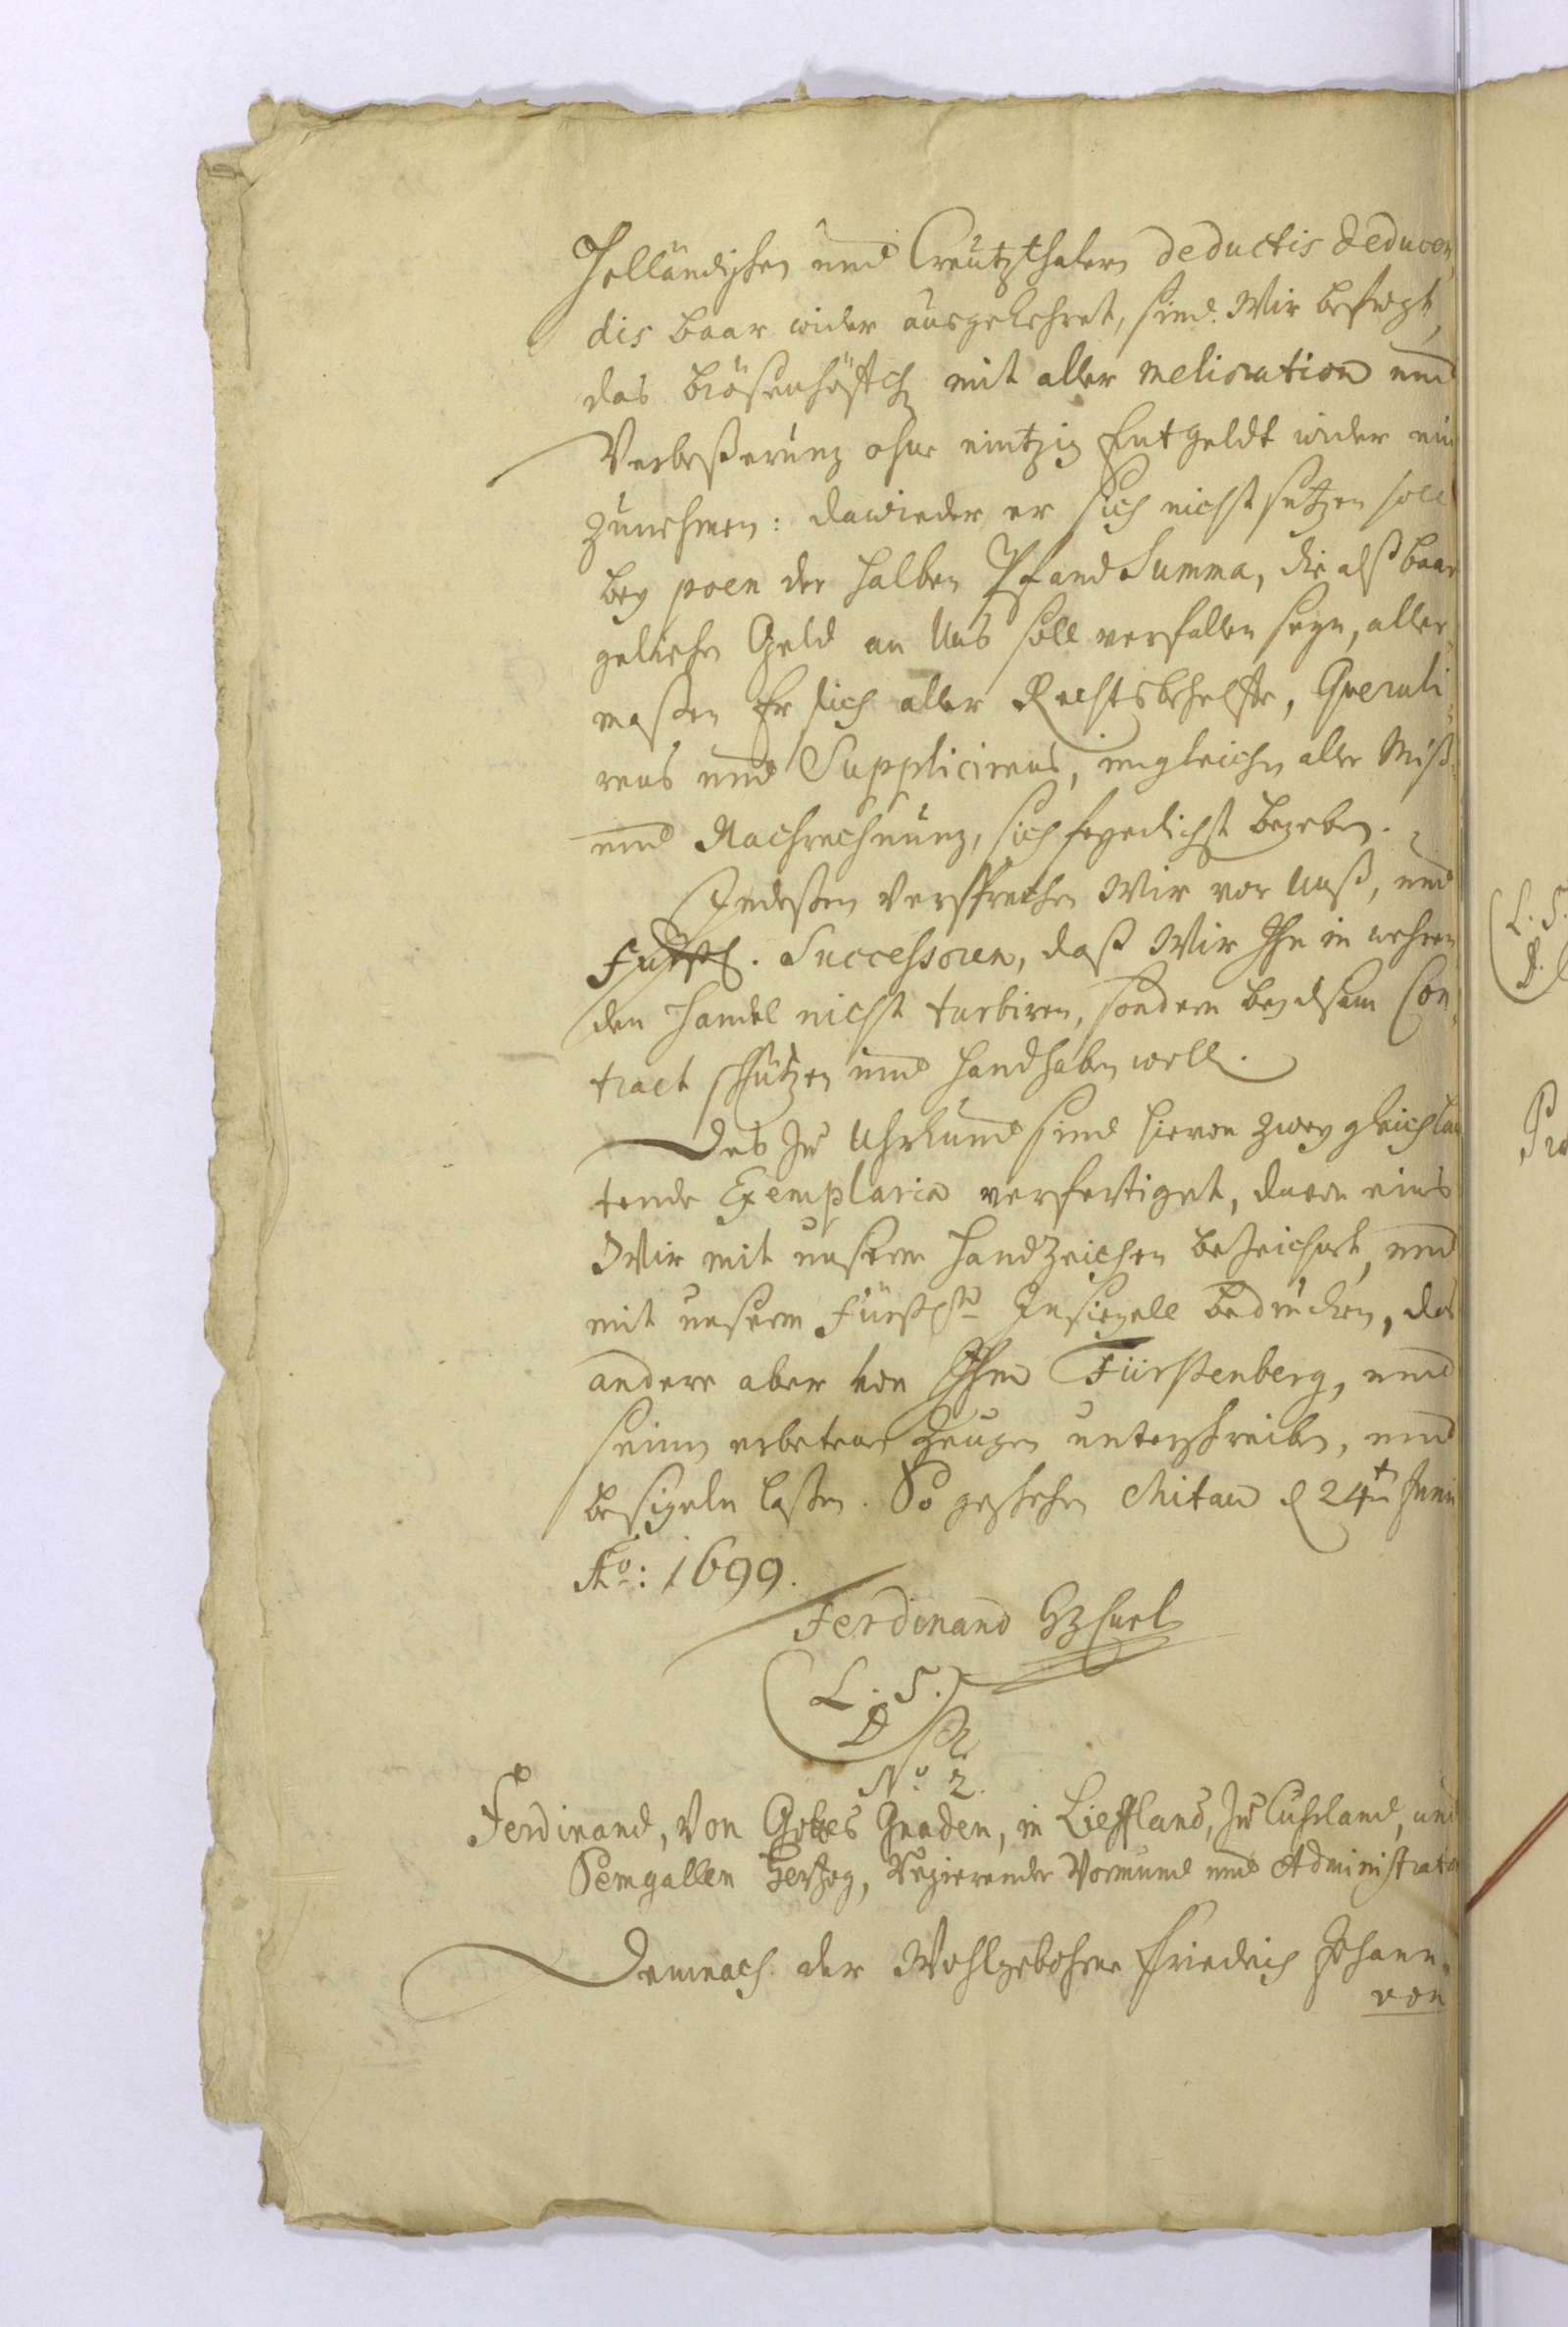 Holländischen und Creutzthalern deductis deducen
dis baar wieder ausgekehret, sind Wir befugt,
das mit aller melioration und
Verbeßerung ohne eintzig Entgeldt wider ein
zunehmen: dawieder er sich nicht setzen soll
bey poen der halben Pfand Summa, die alß baar
geliehn Geld an Uns soll verfallen seyn, aller
maßen Er sich aller Rechtsbehelffe, Queruli
rens und Supplicirens, imgleichen aller Miß
und Nachrechnung, sich begeben.
Indeßen versprechen Wir vor Unß, und
Fürstl. Successoren, daß Wir Ihn in wehren
den Handel nicht turbiren, sondern bey dsem Con
tract schützen und handhaben woll.
Des zu Uhrkund sind hievon zwey gleichlau
tende Exemplaria verfertiget, davon eins
Wir mit unserm Handzeichen bezeichnet, und
mit unserm Fürstl. Insiegell bedrucken, das
andere aber von Ihm Fürstenberg, und
seinen erbetenen Zeugen unterschreiben, und
besigeln laßen. So geschehen Mitau d 24t Junii
Ao: 1699.
Ferdinand HzChurl
(L. S.)
No 2.
Ferdinand, Von Gottes Gnaden, in Lieffland, zu Curland, und
Semgallen Hertzog, Regierender Vormund und Administrator
Demnach der Wohlgebohrne Friedrich Johann
von
L. S.